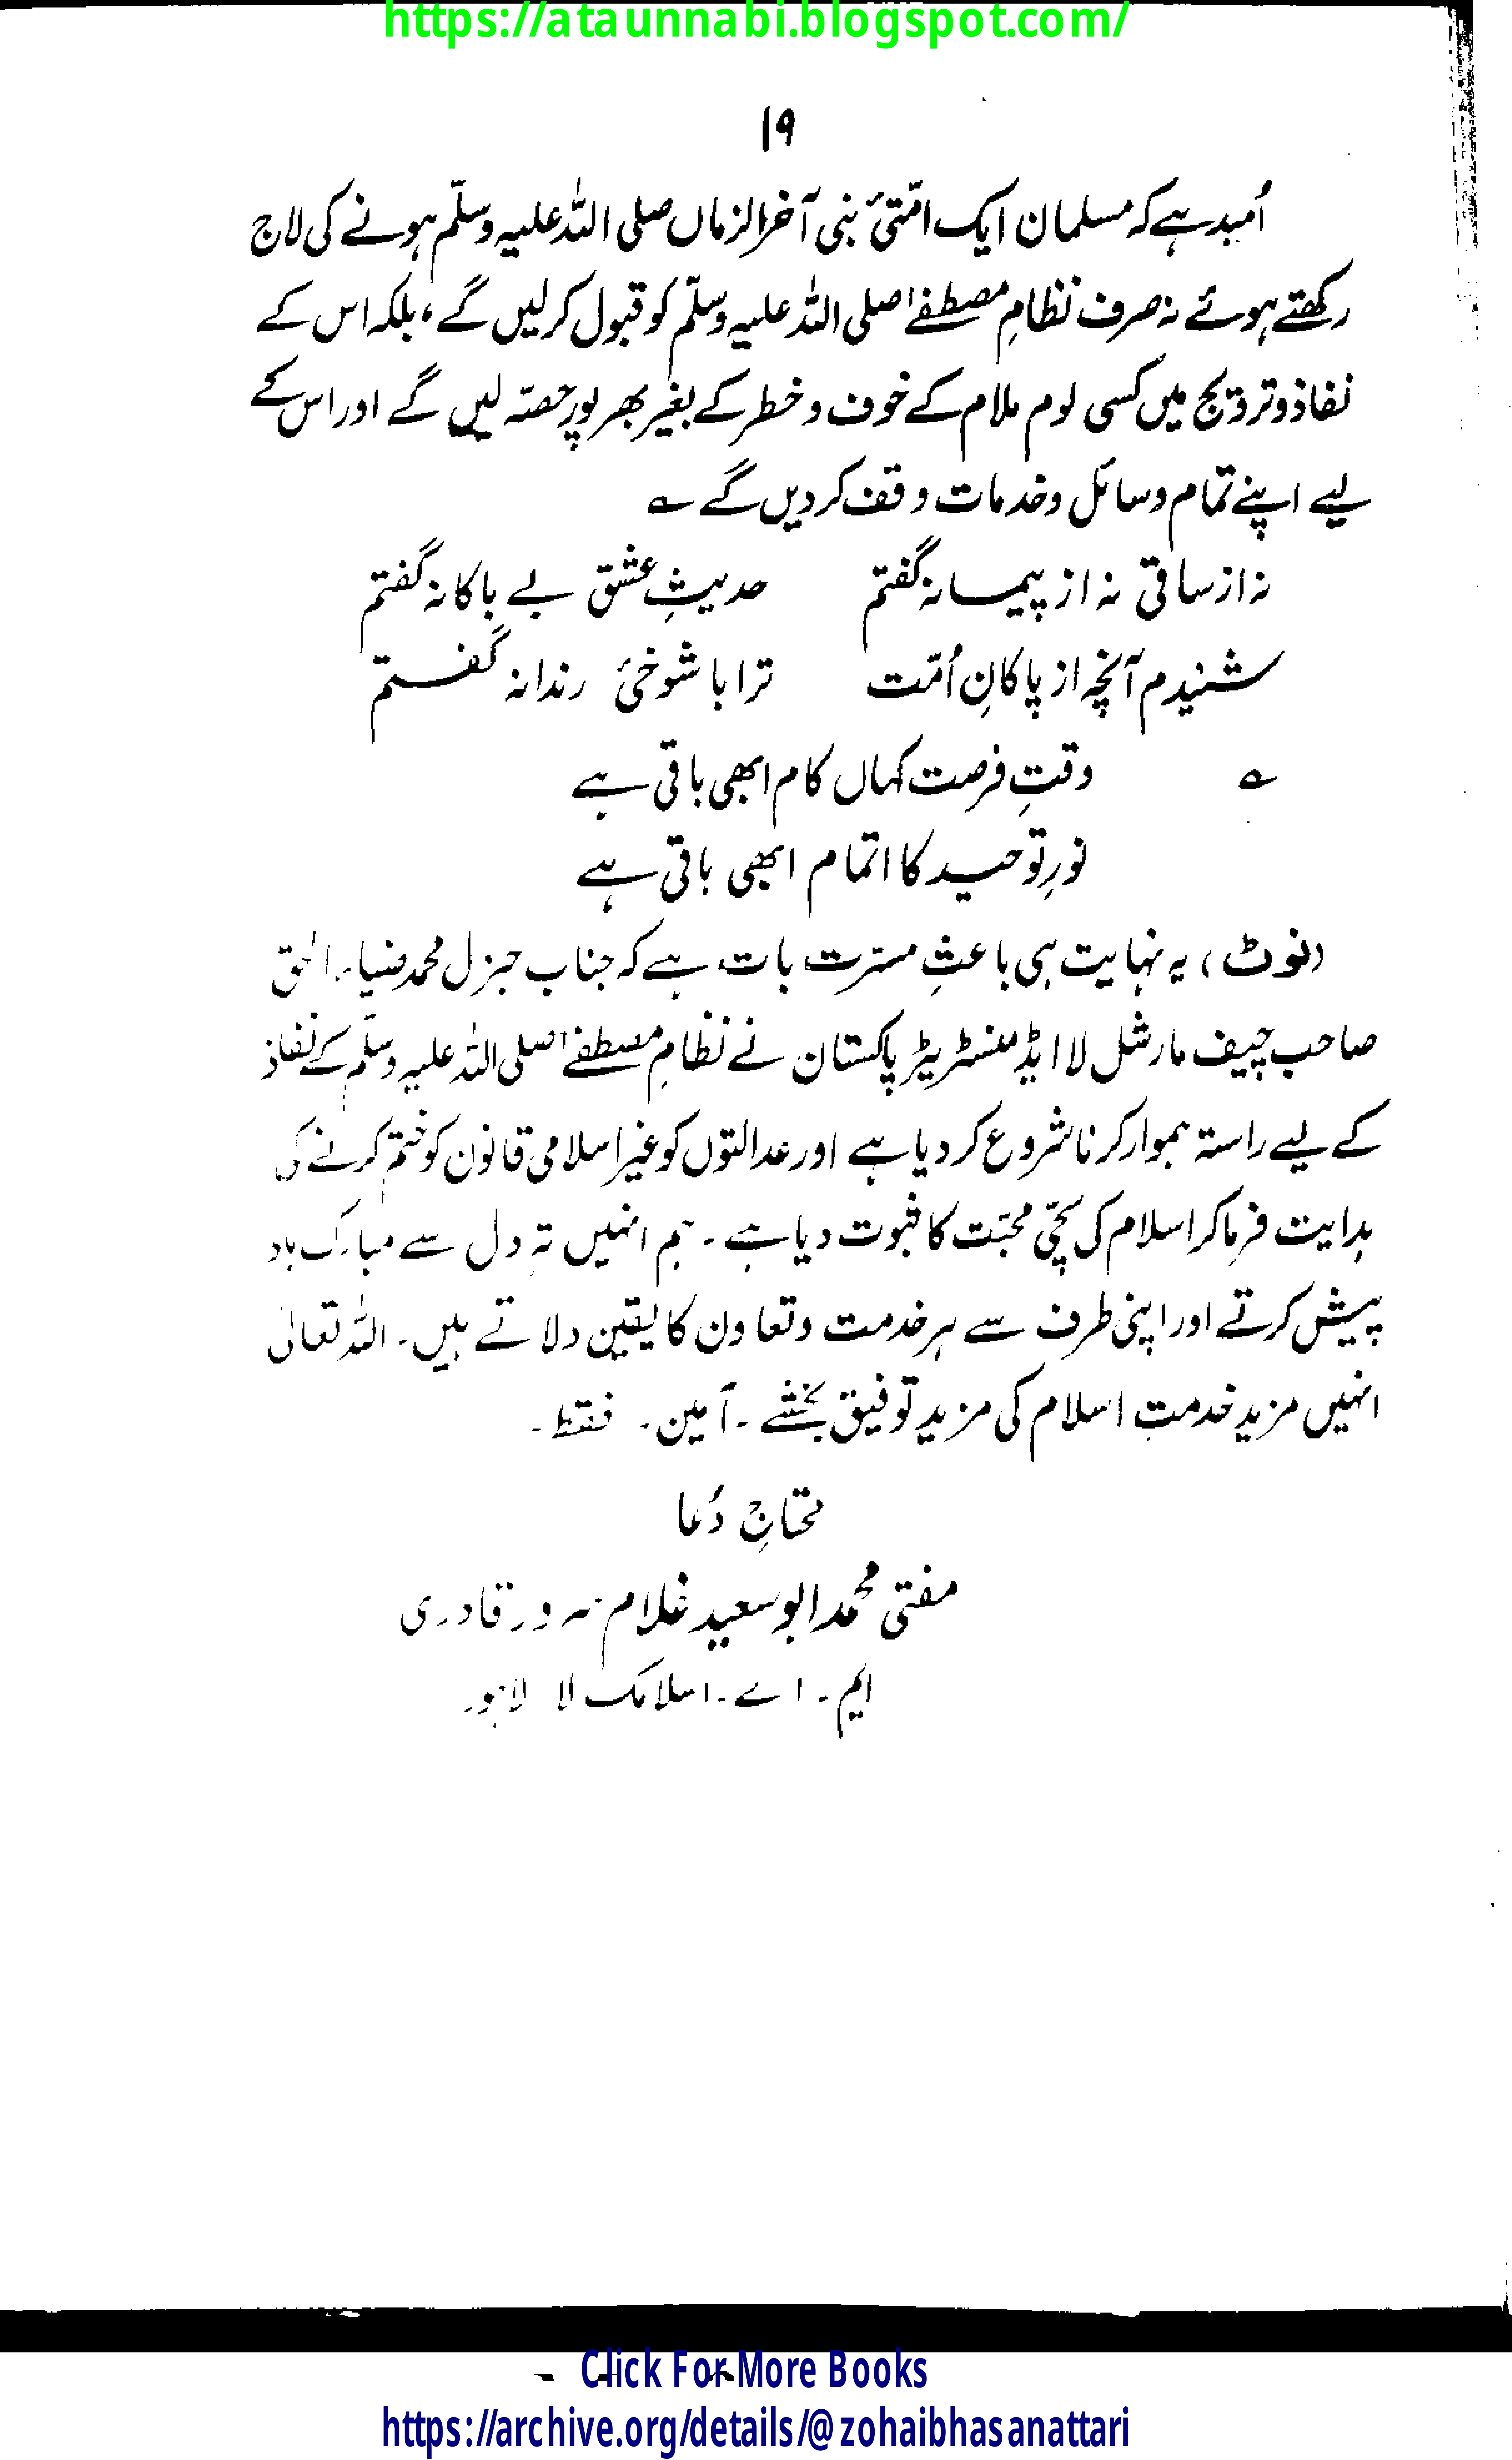 https://ataunnabi.blogspot.com/
۱۹
اُمید ہے کہ مسلمان ایک امّتیٔ نبی آخر الزماں صلی اللہ علیہ وسلّم ہونے کی لاج
رکھتے ہوئے نہ صرف نظامِ مصطفےٰ صلی اللہ علیہ وسلّم کو قبول کرلیں گے، بلکہ اس کے
نفاذ و ترویج میں کسی لوم ملام کے خوف و خطر کے بغیر بھر پور حصّہ لیں گے اور اس کے
لیے اپنے تمام وسائل و خدمات وقف کردیں گے ؎
نہ از ساقی نہ از پیمانہ گفتم حدیثِ عشق بے باکانہ گفتم
شنیدم آنچہ از پاکانِ اُمّت ترا با شوخیٔ رندانہ گفتم
؎ وقتِ فرصت کہاں کام ابھی باقی ہے
نورِ توحید کا اتمام ابھی باقی ہے
(نوٹ) یہ نہایت ہی باعثِ مسرّت بات ہے کہ جناب جنرل محمد ضیاء الحق
صاحب چیف مارشل لا ایڈمنسٹریٹر پاکستان نے نظامِ مصطفےٰ صلی اللہ علیہ وسلّم کے نفاذ
کے لیے راستہ ہموار کرنا شروع کردیا ہے اور عدالتوں کو غیر اسلامی قانون کو ختم کرنے کی
ہدایت فرما کر اسلام کی سچّی محبّت کا ثبوت دیا ہے۔ ہم انہیں تہِ دل سے مبارک باد
پیش کرتے اور اپنی طرف سے ہر خدمت و تعاون کا یقین دلاتے ہیں۔ اللہ تعالٰی
انہیں مزید خدمتِ اسلام کی مزید توفیق بخشے۔ آمین۔ فقط۔
محتاجِ دُعا
مفتی محمد ابو سعید غلام سرور قادری
ایم۔ اے۔ اسلامک لا لاہور
Click For More Books
https://archive.org/details/@zohaibhasanattari